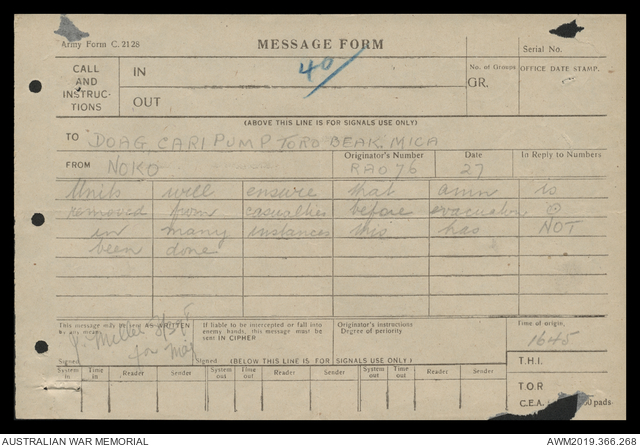 Army Form C.2128
MESSAGE FORM
Serial No.
CALL AND INSTRUC-TIONS
IN
40
No. of Groups
GR.
OFFICE DATE STAMP.
OUT
(ABOVE THIS LINE IS FOR SIGNALS USE ONLY)
TO DOAG CARI PUMP TORO BEAK MICA
FROM NOKO
Originator's Number
RAO76
Date
27
In Reply to Numbers
Units will ensure that amn is
removed from casualties before evacuation ⊙
in many instances this has NOT
been done
This message may be sent AS WRITTEN by any means.
If liable to be intercepted or fall into enemy hands, this message must be sent IN CIPHER
Originator's instructions
Degree of periority
Time of origin.
1645
Miller
for Maj
Signed
Signed
(BELOW THIS LINE IS FOR SIGNALS USE ONLY)
T.H.I.
System in
Time in
Reader
Sender
System out
Time out
Reader
Sender
System out
Time out
Reader
Sender
T.O.R
C.E.A.
pads.
AUSTRALIAN WAR MEMORIAL
AWM2019.366.268